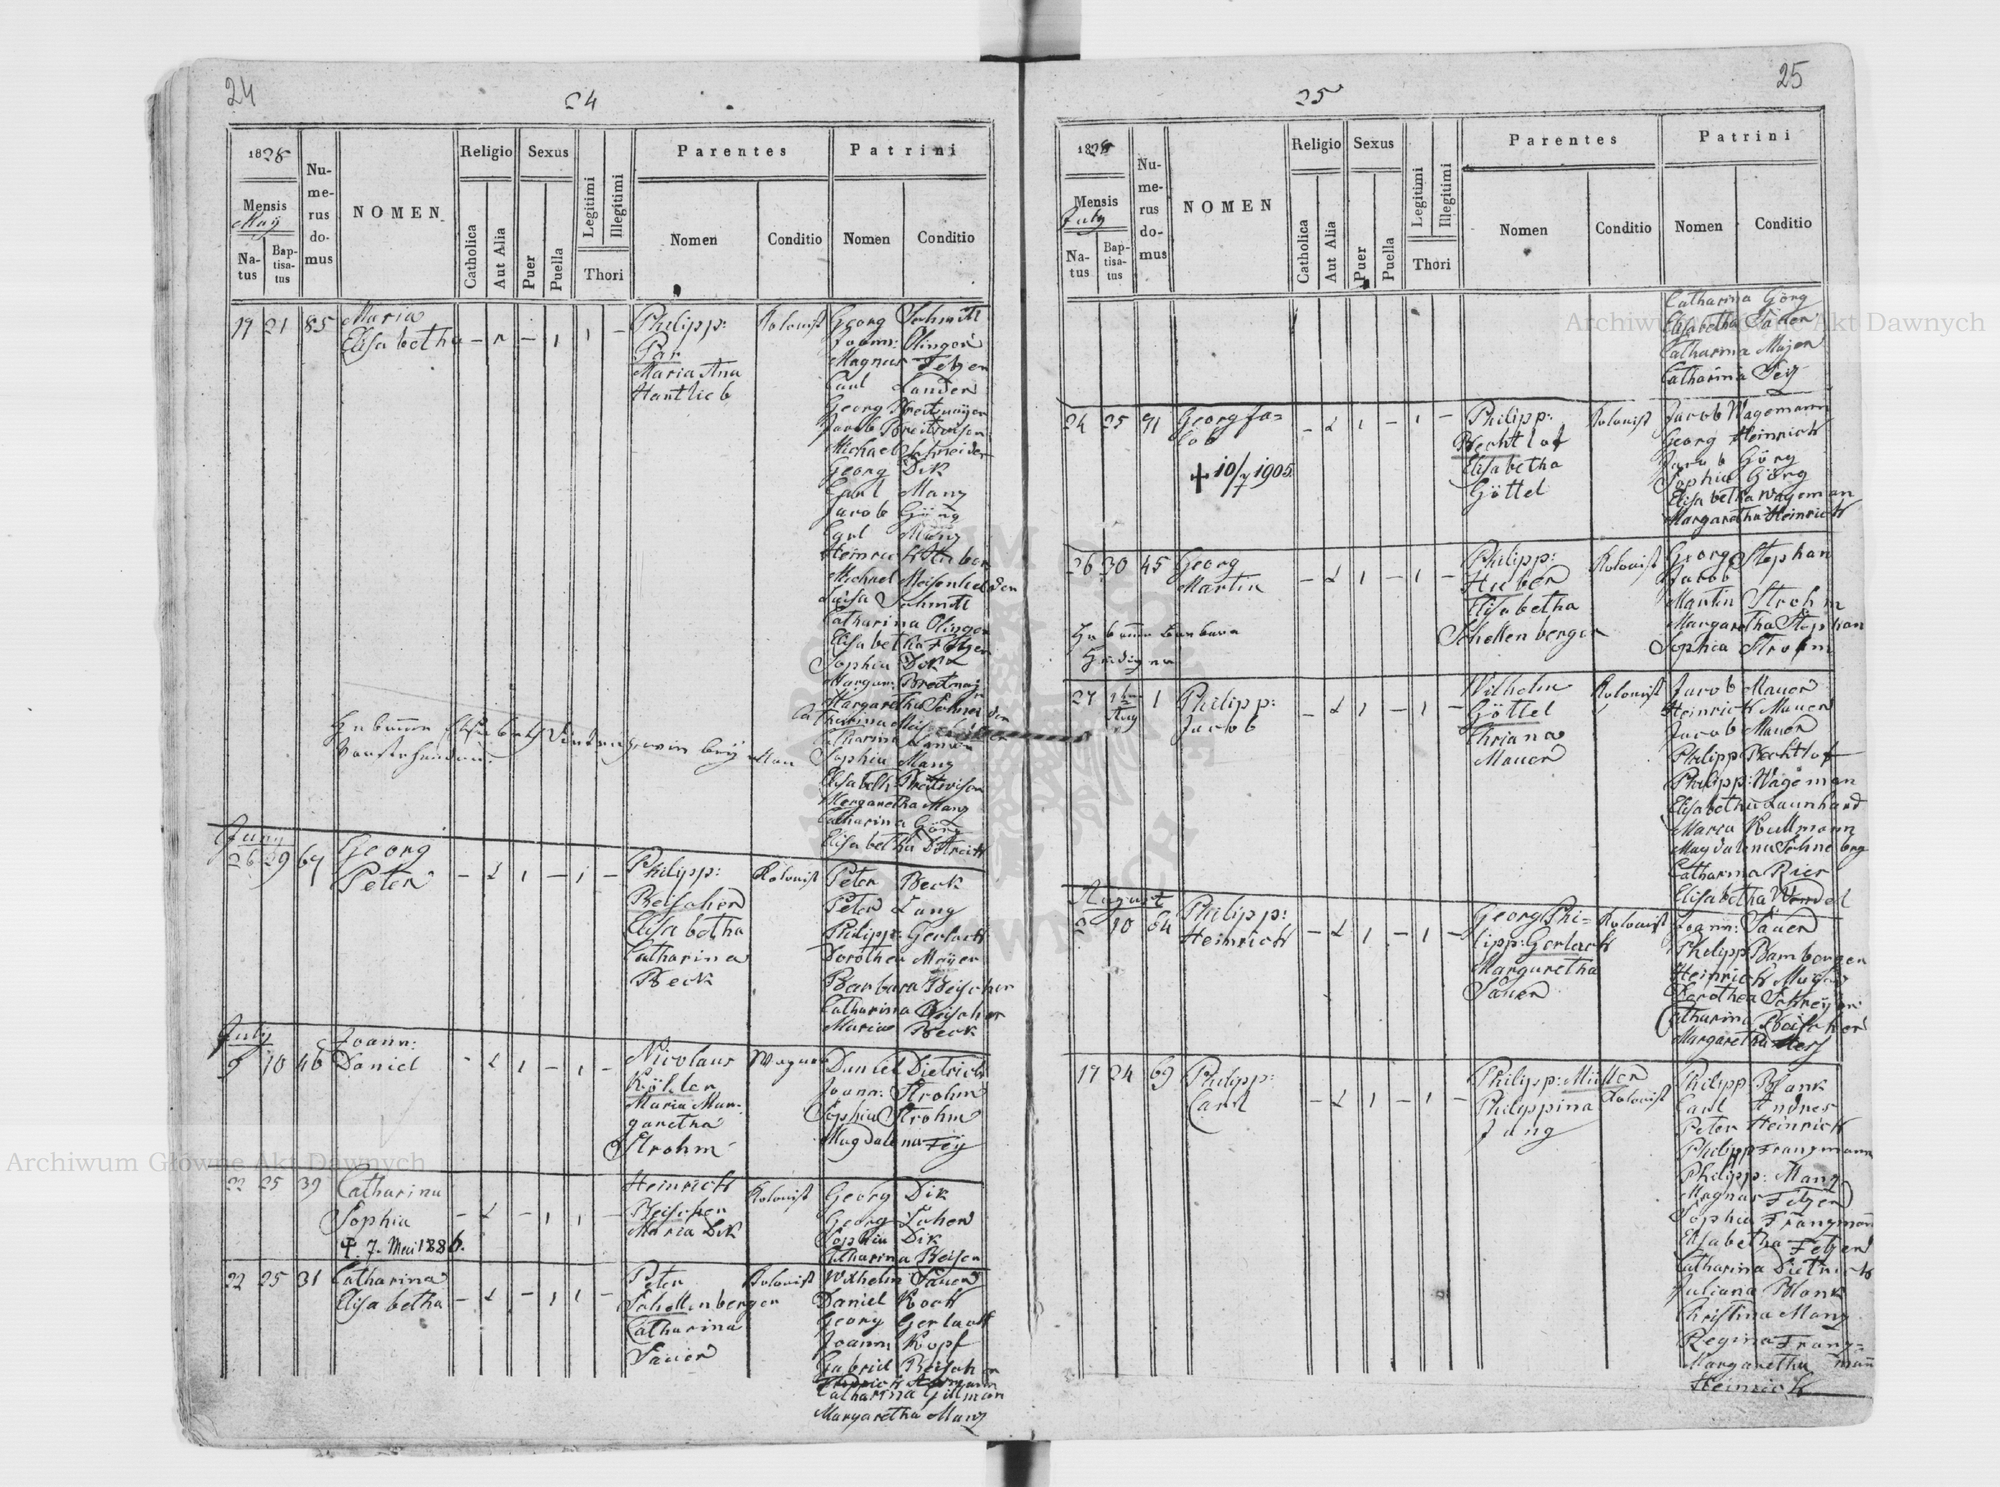 24
24
1828
Mensis
May
Na-
tus
Bap-
tisa-
tus
Nu-
me-
rus
do-
mus
NOMEN
Religio
Catholica
Aut Alia
Sexus
Puer
Puella
Legitimi
Illegitimi
Thori
Parentes
Nomen
Conditio
Patrini
Nomen
Conditio
19 21 85 Maria
Elisabetha
Philipp:
Maria Ana
Kolonist
Georg Schmitt
Joann: Olinger
Magnus Fetzer
Carl Lander
Georg Breitmayer
Jacob Breitwiser
Michael Schneider
Georg Dik
Carl Manz
Jacob Görg
Carl Manz
Heinrich
Michael
Luisa Schmitt
Catharina Olinger
Elisabetha Fetzer
Sophia Dik
Margar: Breitmay
Margaretha Schneider
Catharina
Sophia Manz
Elisabeth Breitwiser
Margaretha Manz
Catharina Görg
Elisabetha
Juny
26 29 67 Georg
Peter
Philipp:
Beischer
Elisabetha
Catharina
Beck
Kolonist
Peter Beck
Peter Lang
Philipp: Gerlach
Dorothea Mayer
Barbara Beischer
Catharina Beischer
Maria Beck
July
9 10 46 Joann:
Daniel
Nicolaus
Köhler
Maria Mar-
garetha
Strohm
Wagner
Daniel Dietrich
Joann: Strohm
Sophia Strohm
Magdalena Fey
22 25 39 Catharina
Sophia
✝. 7. Mai 1886.
Heinrich
Beischer
Maria Dik
Kolonist
Georg Dik
Georg
Sophia Dik
Catharina
22 25 31 Catharina
Elisabetha
Peter
Schellenberger
Catharina
Sauer
Kolonist
Wilhelm Sauer
Daniel Koch
Georg Gerlach
Joann: Kopf
Gabriel Beischer
Catharina Gillman
Margaretha Manz
25
25
1828
Mensis
July
Na-
tus
Bap-
tisa-
tus
Nu-
me-
rus
do-
mus
NOMEN
Religio
Catholica
Aut Alia
Sexus
Puer
Puella
Legitimi
Illegitimi
Thori
Parentes
Nomen
Conditio
Patrini
Nomen
Conditio
Catharina Görg
Elisabetha Sauer
Catharina Mayer
Catharina Fey
24 25 91 Georg Ja-
cob
✝ 10/7 1905.
Philipp:
Bechtlof
Elisabetha
Göttel
Kolonist
Jacob Wagemann
Georg Heinrich
Jacob Görg
Sophia Görg
Elisabetha Wageman
Margaretha Heinrich
26 30 45 Georg
Martin
Philipp:
Huber
Elisabetha
Schellenberger
Kolonist
Georg Stephan
Jacob
Martin Strohm
Margaretha Stephan
Sophia Strohm
27 1 Aug 1 Philipp:
Jacob
Wilhelm
Göttel
Mauer
Kolonist
Jacob Mauer
Heinrich Mauer
Jacob Mauer
Philipp Bechtlof
Philipp: Wageman
Elisabetha Launhard
Maria Kullmann
Magdalena
Catharina Rier
Elisabetha Wendel
August
10 64 Philipp:
Heinrich
Georg Phi-
lipp: Gerlach
Margaretha
Sauer
Kolonist
Joann: Sauer
Philipp Bamberger
Heinrich Mayer
Dorothea Schreyer
Catharina Beischer
Margaretha
17 24 69 Philipp:
Carl
Philipp: Müller
Philippina
Jung
Kolonist
Philipp Blank
Carl Andres
Peter Heinrich
Philipp Frangmann
Philipp: Manz
Magnus Fetzer
Sophia Frangmann
Elisabetha Fetzer
Catharina Dietrich
Juliana Blank
Christina Manz
Regina Frang-
mann
Margaretha
Heinrich
Archiwum Główne Akt Dawnych
Archiwum Główne Akt Dawnych